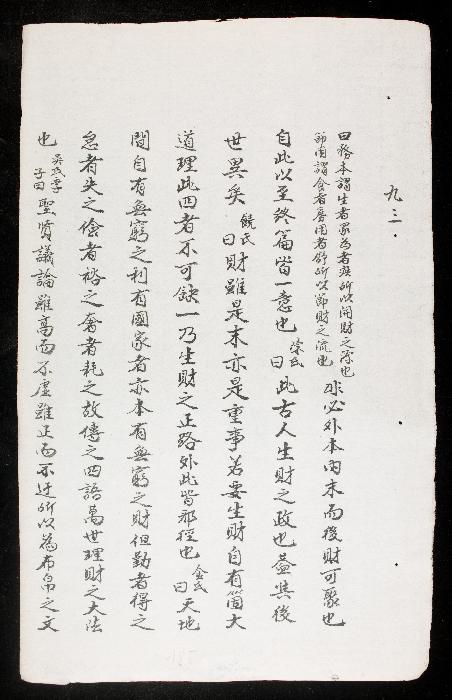 九三
曰務本謂生者眾為者疾所以開財之源也
節用謂食者寡用者舒所以節財之流也
非必外本內末而後財可聚也
自此以至終篇皆一意也 榮氏曰 此古人生財之政也蓋與後
世異矣 饒氏曰 財雖是末亦是重事若要生財自有箇大
道理此四者不可缺一乃生財之正路外此皆邪徑也 金氏曰 天地
間自有無窮之利有國家者亦本有無窮之財但勤者得之
怠者失之儉者裕之奢者耗之故傳之四語萬世理財之大法
也 吳季子曰 聖賢議論雖高而不虛雖正而不迂所以為布帛之文